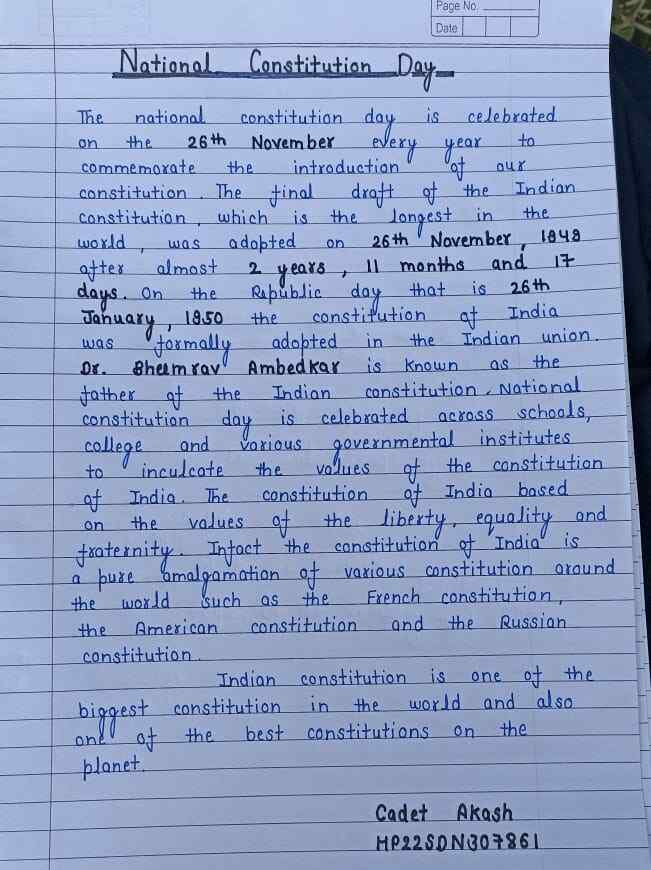 Page No.
Date
National Constitution Day
The national constitution day is celebrated
on the 26th November every year to
commemorate the introduction of our
constitution. The final draft of the Indian
constitution, which is the longest in the
world, was adopted on 26th November, 1949
after almost 2 years, 11 months and 17
days. On the Republic day that is 26th
January, 1950 the constitution of India
was formally adopted in the Indian union.
Dr. Bheemrav Ambedkar is known as the
father of the Indian constitution. National
constitution day is celebrated across schools,
college and various governmental institutes
to inculcate the values of the constitution
of India. The constitution of India based
on the values of the liberty, equality and
fraternity. Infact the constitution of India is
a pure amalgamation of various constitution around
the world such as the French constitution,
the American constitution and the Russian
constitution.
Indian constitution is one of the
biggest constitution in the world and also
one of the best constitutions on the
planet.
Cadet Akash
MP22SDN307861